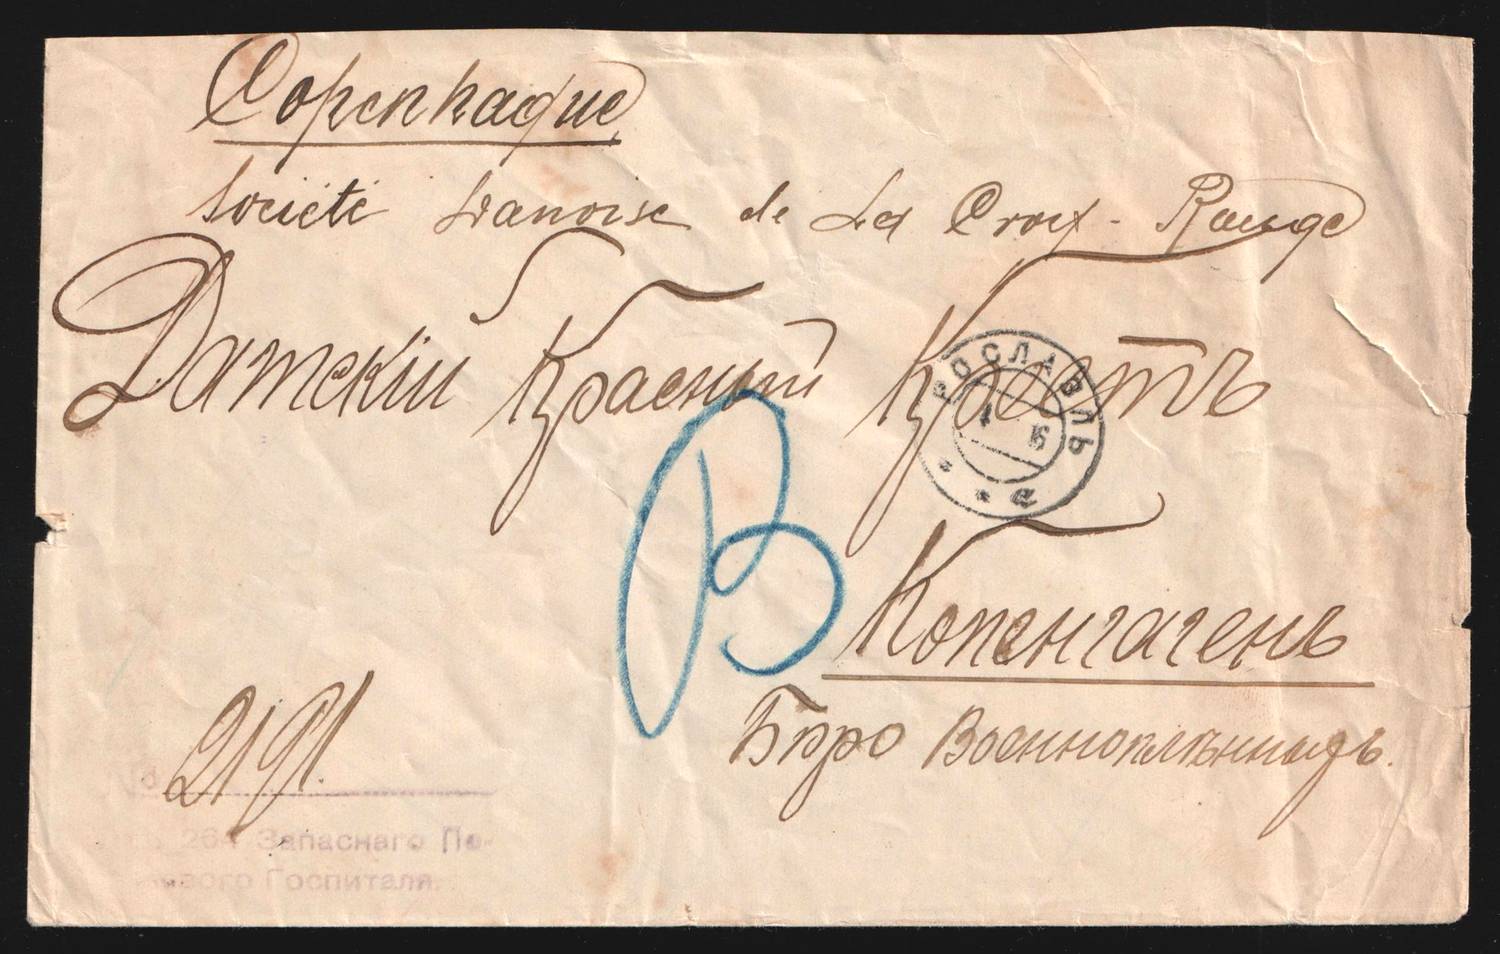 Copenhague
Société Danoise de La Croix-Rouge
Датскій Красный Крестъ
ЯРОСЛАВЛЬ
15
* * а
В
Копенгагенъ
Бюро Военноплѣнныхъ.
2191.
№
264 Запаснаго По-
Госпиталя.